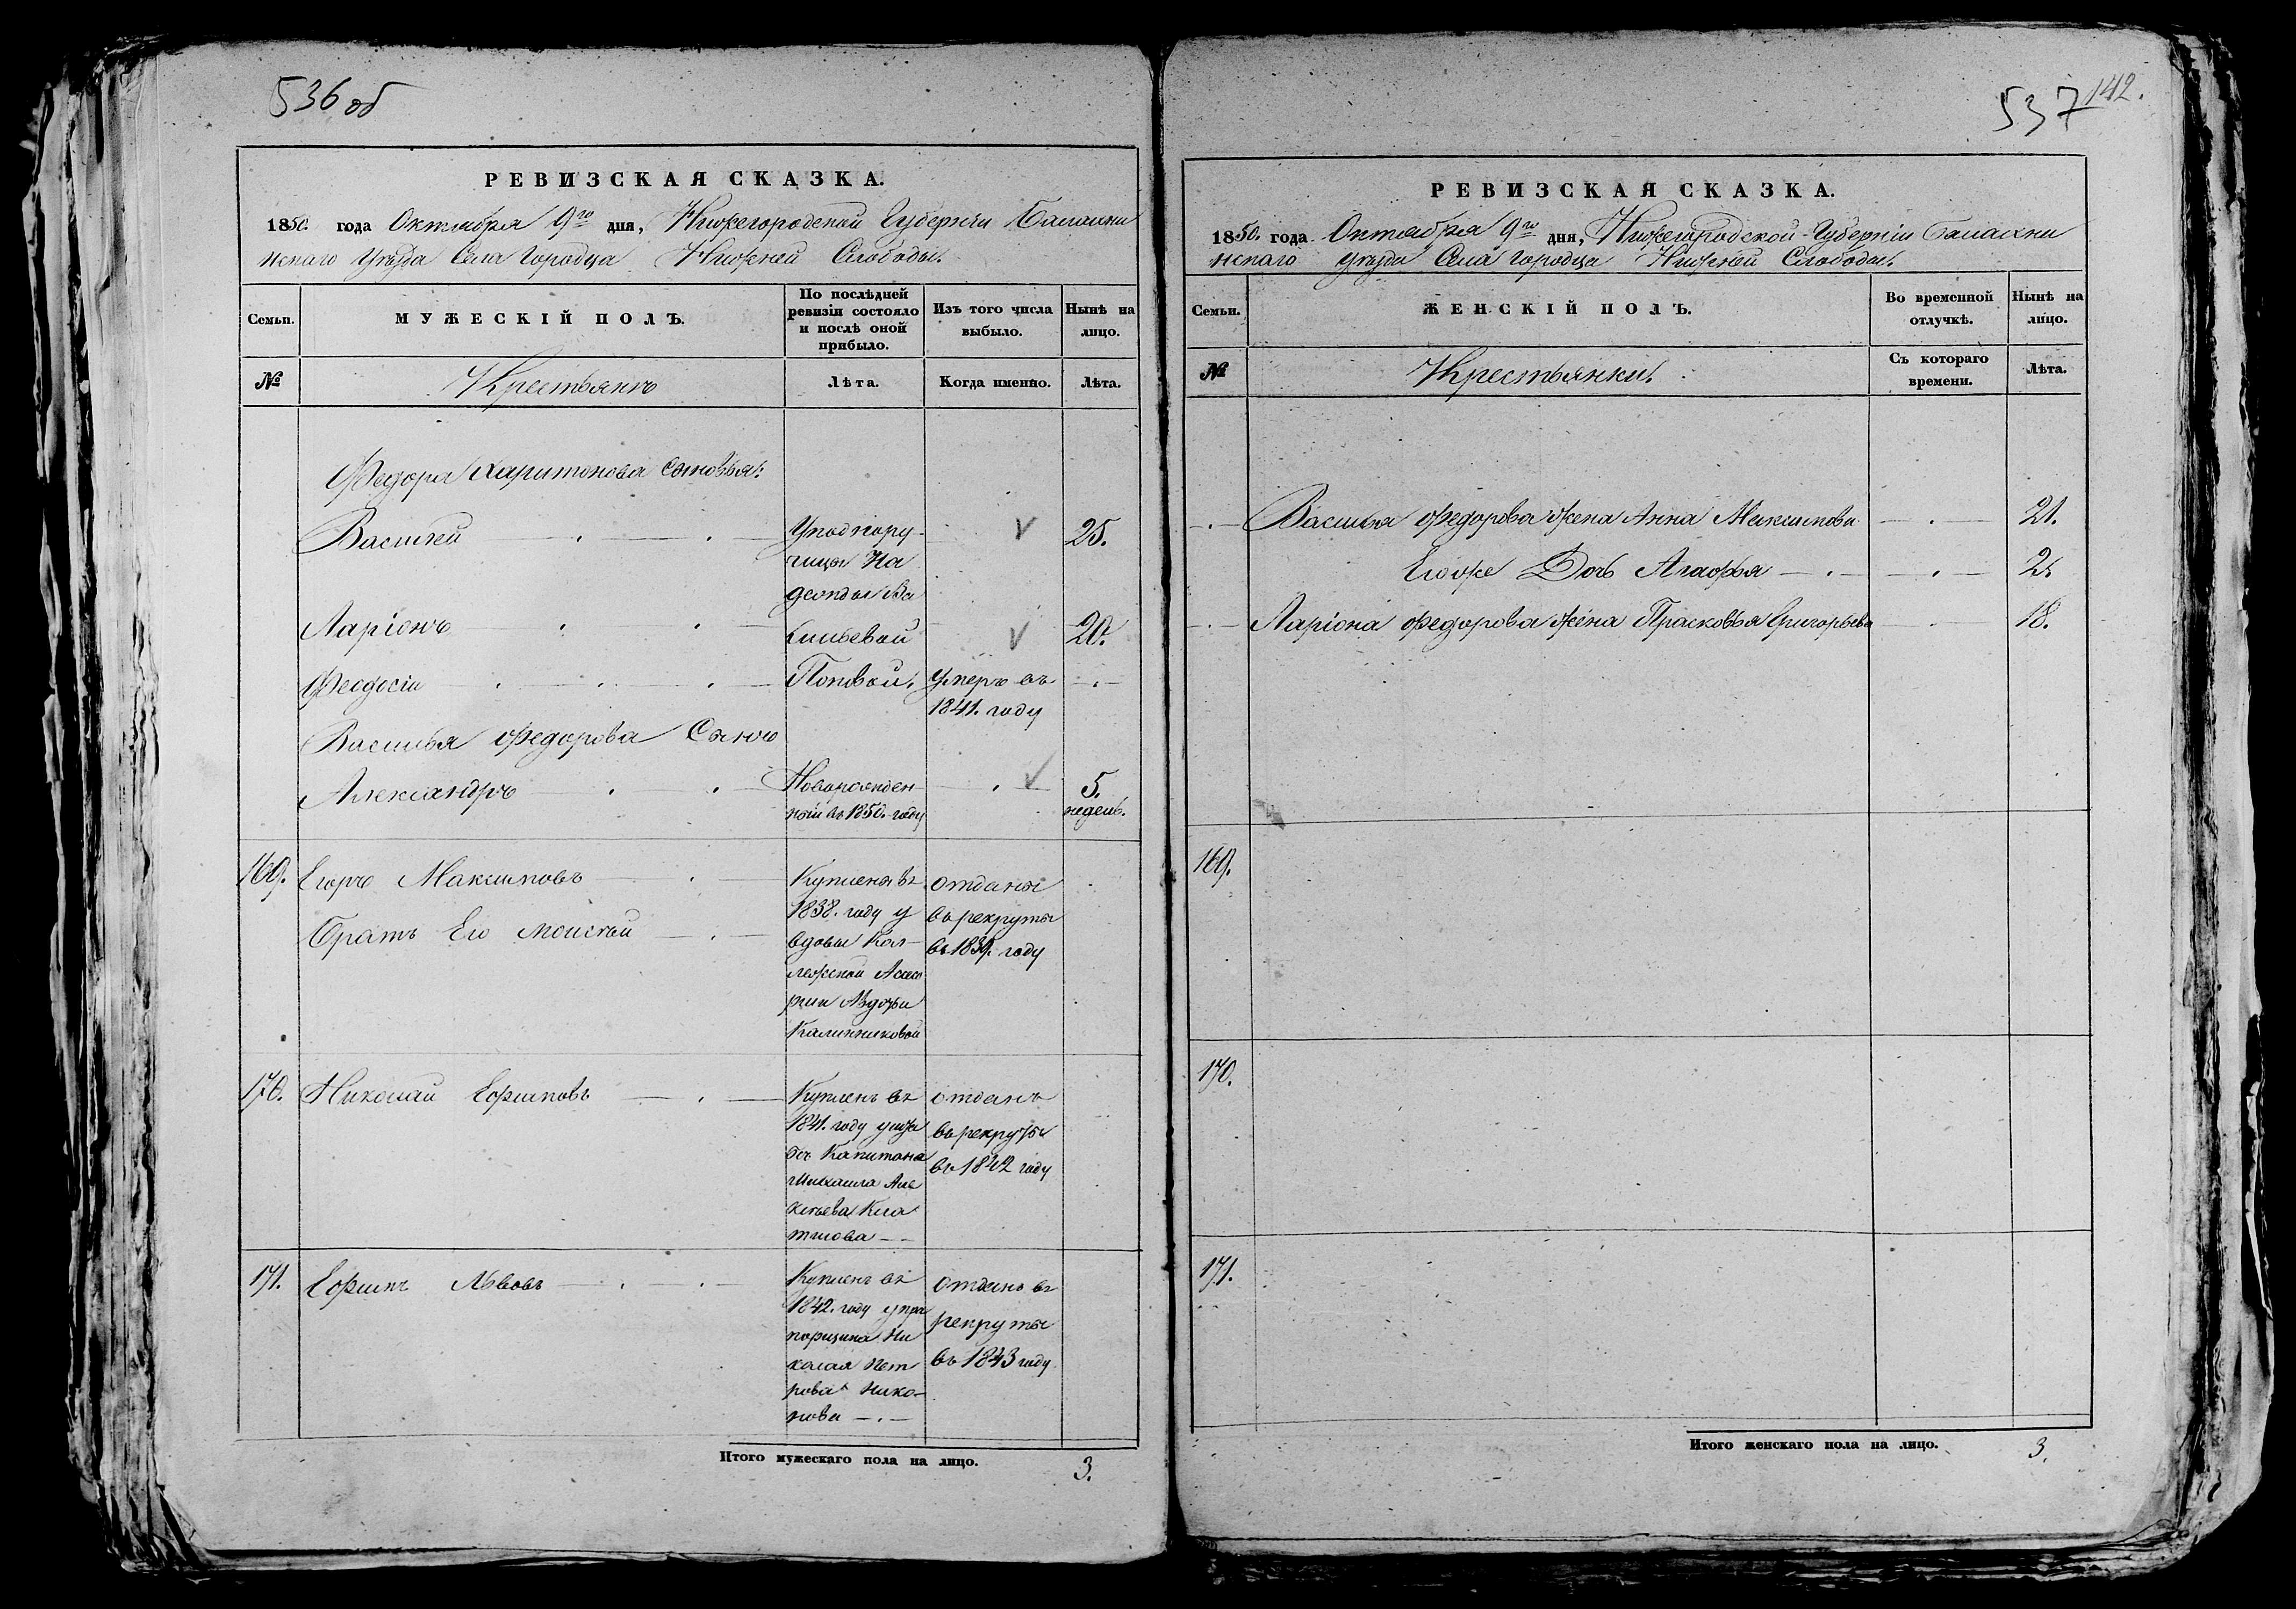 536 об
РЕВИЗСКАЯ СКАЗКА.
1850. года Октября 9го дня, Нижегородской Губернiи Балахни
нскаго Уѣзда Села Городца Нижней Слободы.
Семьи.
МУЖЕСКIЙ ПОЛЪ.
По послѣдней
ревизiи состояло
и послѣ оной
прибыло.
Изъ того числа
выбыло.
Нынѣ на
лицо.
№
Крестьянъ
Лѣта.
Когда именно.
Лѣта.
Федора Харитонова Сыновья:
Василей
У подпору-
чицы На
25.
Ларiонъ
20.
Феодосiй
Поповой.
Умеръ въ
1841. году
Василья Федорова Сынъ
Александръ
Новорожден
ной въ 1850. году
5.
недель.
169.
Егоръ Максимовъ
Братъ Его Моисѣй
Куплены въ
1838. году у
вдовы Кол-
лежской Асесо
рши Авдотьи
Калинниковой
отданы
въ рекруты
въ 1839. году
170.
Николай Ефимовъ
Купленъ въ
1841. году у
Капитана
Михаила Але
ксѣева
отданъ
въ рекруты
въ 1842 году
171.
Ефимъ Львовъ
Купленъ въ
1842. году у пра
порщика Ни
колая Пет
рова Нико-
нова
отданъ въ
рекруты
въ 1843 году
Итого мужескаго пола на лицо.
3.
537
142.
РЕВИЗСКАЯ СКАЗКА.
1850. года Октября 9го дня, Нижегородской Губернiи Балахни
нскаго уѣзда Села Городца Нижней Слободы.
Семьи.
ЖЕНСКIЙ ПОЛЪ.
Во временной
отлучкѣ.
Нынѣ на
лицо.
№
Крестьянки.
Съ котораго
времени.
Лѣта.
Василья Федорова жена Анна Максимова
21.
Егоже Дочь Агафья
2.
Ларiона Федорова жена Прасковья Григорьева
18.
169.
170.
171.
Итого женскаго пола на лицо.
3.